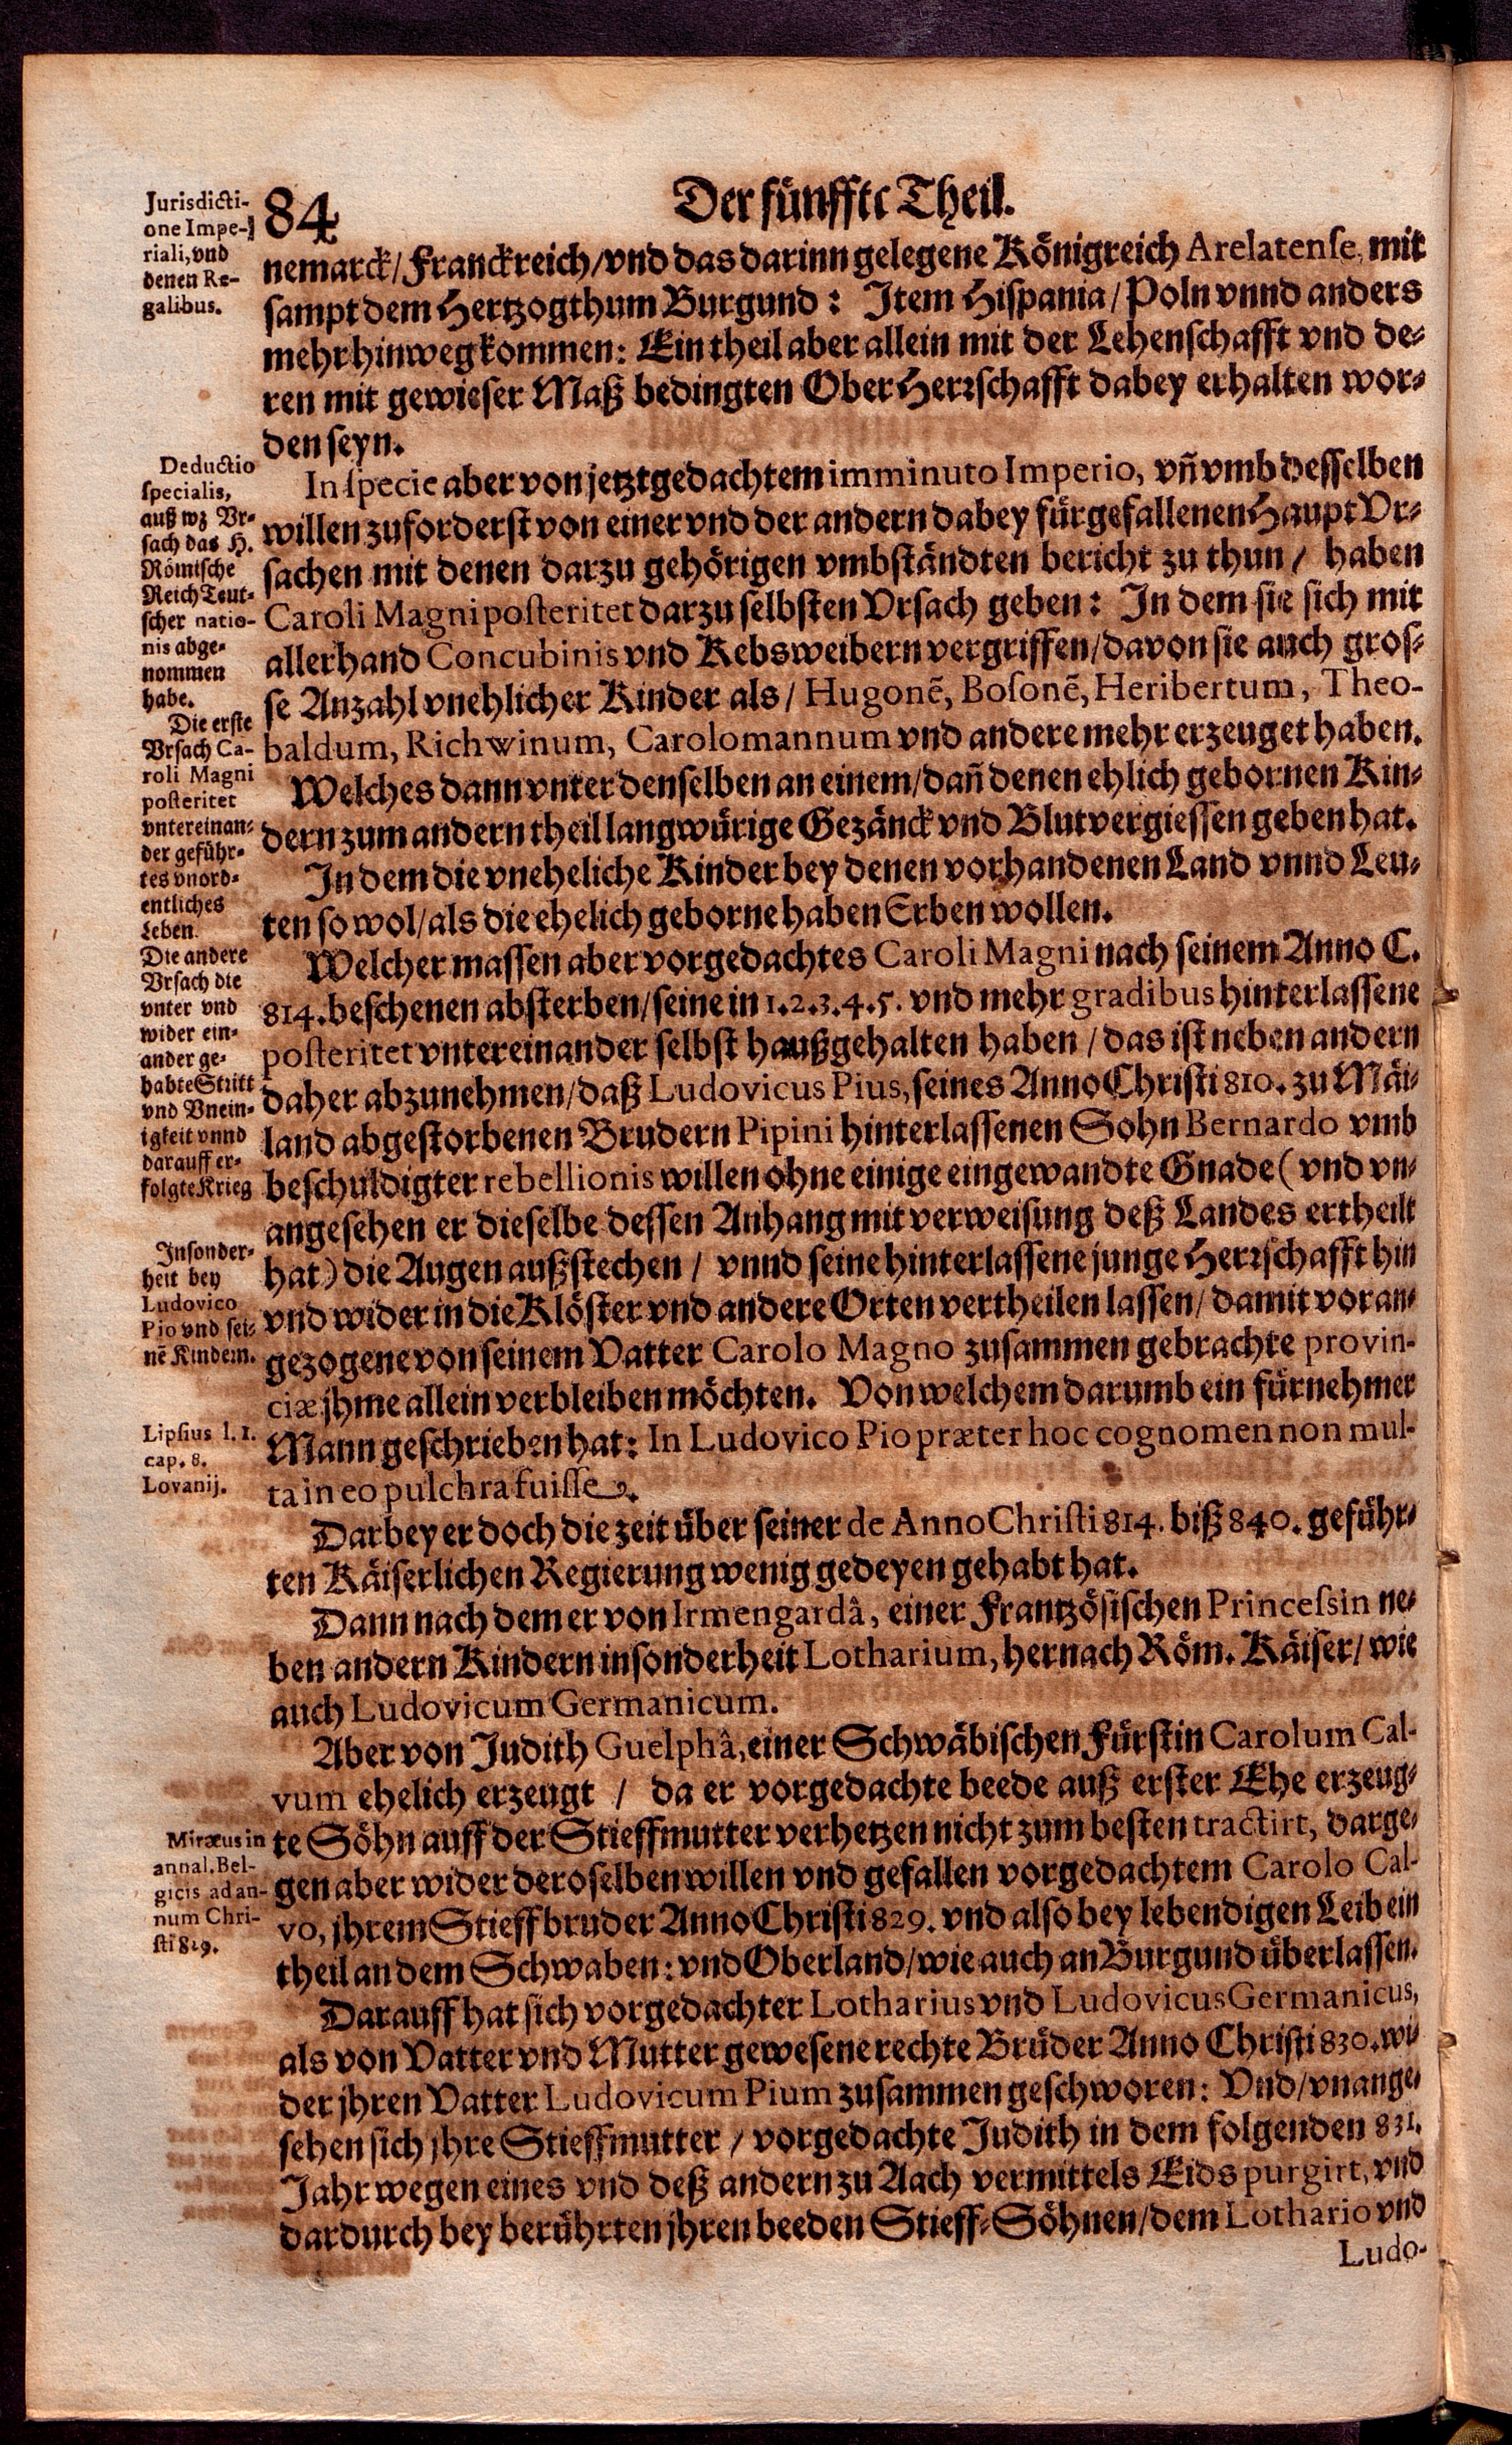 84
Der fünffte Theil.
Jurisdicti-
one Impe-
riali, vnd
denen Re-
galibus.
nemarck/Franckreich/vnd das darinn gelegene Königreich Arelatense, mit
sampt dem Hertzogthum Burgund: Item Hispania/Poln vnnd anders
mehr hinweg kommen: Ein theil aber allein mit der Lehenschafft vnd de-
ren mit gewieser Maß bedingten Ober Herrschafft dabey erhalten wor-
den seyn.
Deductio
specialis,
auß wz Vr-
sach das H.
Römische
Reich Teut-
scher natio-
nis abge-
nommen
habe.
In specie aber von jetztgedachtem imminuto Imperio, vñ vmb desselben
willen zuforderst von einer vnd der andern dabey fürgefallenen Haupt Vr-
sachen mit denen darzu gehörigen vmbständten bericht zu thun/ haben
Caroli Magni posteritet darzu selbsten Vrsach geben: In dem sie sich mit
allerhand Concubinis vnd Kebsweibern vergriffen/davon sie auch gros-
se Anzahl vnehlicher Kinder als/ Hugonẽ, Bosonẽ, Heribertum, Theo-
baldum, Richwinum, Carolomannum vnd andere mehr erzeuget haben.
Die erste
Vrsach Ca-
roli Magni
posteritet
vntereinan-
der geführ-
tes vnord-
entliches
Leben.
Welches dann vnter denselben an einem/dañ denen ehlich gebornen Kin-
dern zum andern theil langwürige Gezänck vnd Blutvergiessen geben hat.
In dem die vneheliche Kinder bey denen vorhandenen Land vnnd Leu-
ten so wol/als die ehelich geborne haben Erben wollen.
Die andere
Vrsach die
vnter vnd
wider ein-
ander ge-
habte Stritt
vnd Vnein-
igkeit vnnd
darauff er-
folgte Krieg
Welcher massen aber vorgedachtes Caroli Magni nach seinem Anno C.
814. beschenen absterben/seine in 1.2.3.4.5. vnd mehr gradibus hinterlassene
posteritet vntereinander selbst haußgehalten haben/das ist neben andern
daher abzunehmen/daß Ludovicus Pius, seines Anno Christi 810. zu Mäi-
land abgestorbenen Brudern Pipini hinterlassenen Sohn Bernardo vmb
beschuldigter rebellionis willen ohne einige eingewandte Gnade (vnd vn-
angesehen er dieselbe dessen Anhang mit verweisung deß Landes ertheilt
hat) die Augen außstechen/ vnnd seine hinterlassene junge Herrschafft hin
vnd wider in die Klöster vnd andere Orten vertheilen lassen/damit voran-
gezogene von seinem Vatter Carolo Magno zusammen gebrachte provin-
ciæ jhme allein verbleiben möchten. Von welchem darumb ein fürnehmer
Mann geschrieben hat: In Ludovico Pio præter hoc cognomen non mul-
ta in eo pulchra fuisse.
Insonder-
heit bey
Ludovico
Pio vnd sei-
nẽ Kindern.
Lipsius l. 1.
cap. 8.
Lovanij.
Darbey er doch die zeit über seiner de Anno Christi 814. biß 840. geführ-
ten Käiserlichen Regierung wenig gedeyen gehabt hat.
Dann nach dem er von Irmengardâ, einer Frantzösischen Princessin ne-
ben andern Kindern insonderheit Lotharium, hernach Röm. Käiser/wie
auch Ludovicum Germanicum.
Aber von Judith Guelphâ, einer Schwäbischen Fürstin Carolum Cal-
vum ehelich erzeugt / da er vorgedachte beede auß erster Ehe erzeug-
te Söhn auff der Stieffmutter verhetzen nicht zum besten tractirt, darge-
gen aber wider deroselben willen vnd gefallen vorgedachtem Carolo Cal-
vo, jhrem Stieffbruder Anno Christi 829. vnd also bey lebendigen Leib ein
theil an dem Schwaben: vnd Oberland/wie auch an Burgund überlassen.
Miræus in
annal. Bel-
gicis ad an-
num Chri-
sti 829.
Darauff hat sich vorgedachter Lotharius vnd Ludovicus Germanicus,
als von Vatter vnd Mutter gewesene rechte Brüder Anno Christi 830. wi-
der jhren Vatter Ludovicum Pium zusammen geschworen: Vnd/vnange-
sehen sich jhre Stieffmutter/ vorgedachte Judith in dem folgenden 831.
Jahr wegen eines vnd deß andern zu Aach vermittels Eids purgirt, vnd
dardurch bey berührten jhren beeden Stieff-Söhnen/dem Lothario vnd
Ludo-